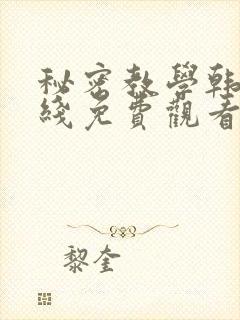 秘密教學韩
綫免費觀看
黎奎